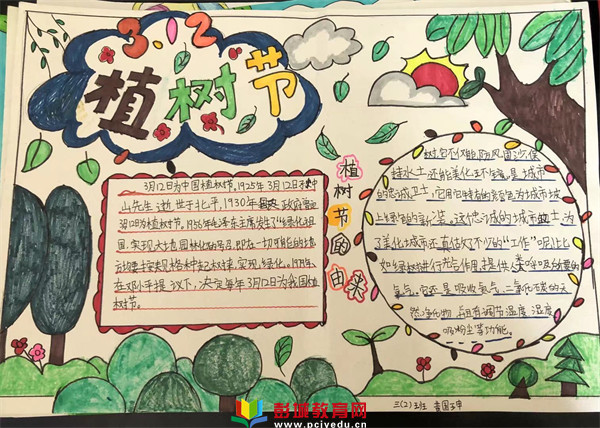 3.12
植树节
3月12日为中国植树节,1925年3月12日孙中
山先生逝世于北平,1930年
12日为植树节。1956年毛泽东主席发生了"绿化祖
国,实现大地园林化"的号召,即在一切可能的地
方均要按规格种起树来,实现绿化。1979年,
在邓小平提议下,决定每年3月12日为我国植
树节。
植树节的由来
树,它不仅能防风固沙,保
持水土,还能美化环境,是城市
的忠诚卫士,它用它特有的 色为城市披
上绿色的新装。这忠诚的城市卫士,为
了美化城市还真估了不少的"工作"呢!比
如绿树进行光合作用,提供人类呼吸所需要的
氧气。它还是吸收氧气,二氧化碳的天
然净化物,且有调节温度,湿度,
吸粉尘等功能。
三(2)班
彭城教育网
www.pcivedu.cn